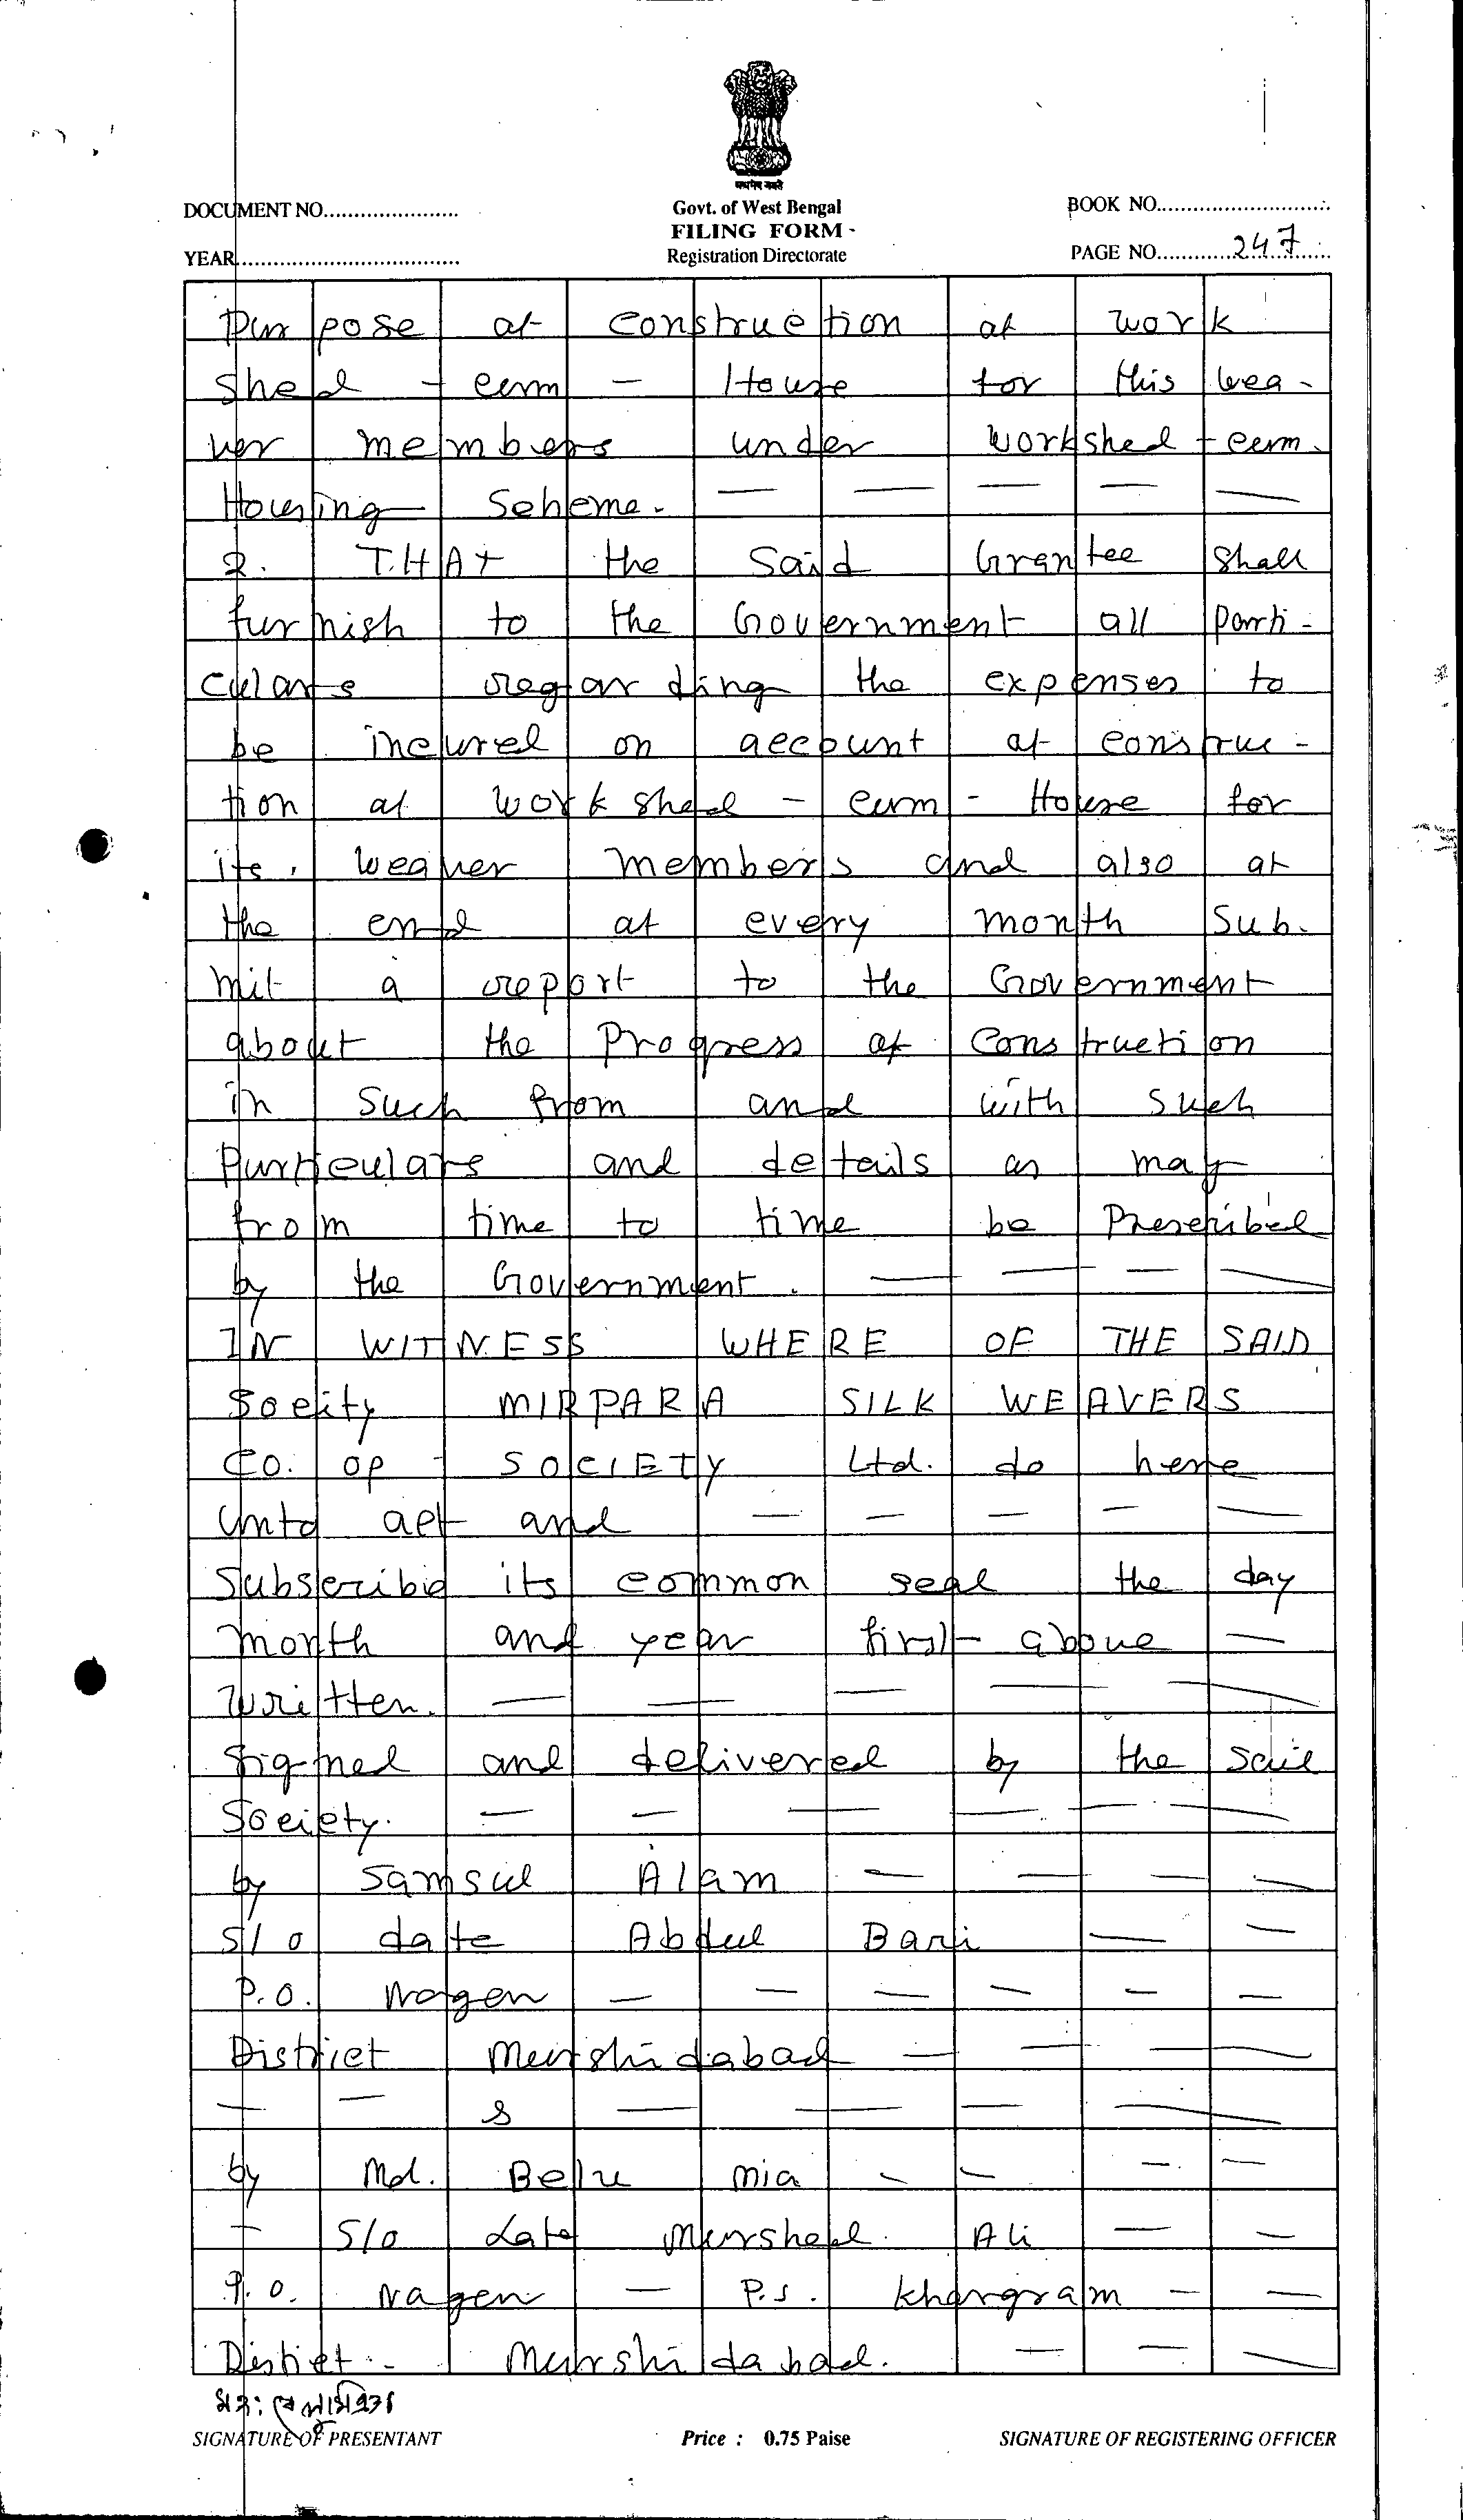 सत्यमेव जयते
DOCUMENT NO......................
Govt. of West Bengal
BOOK NO............................
FILING FORM
YEAR...................................
Registration Directorate
PAGE NO............247......
Purpose of Construction of work
shed - cum - House for this wea -
ver members under workshed - cum -
Housing Scheme. — — — — —
2. THAT the Said Grantee Shall
furnish to the Government all parti -
culars regarding the expenses to
be incured on account of construc -
tion of work shed - cum - House for
its, weaver members and also at
the end of every month Sub -
mit a report to the Government
about the Progress of Construction
in such from and with such
Purticulars and details as may
from time to time be Prescribed
by the Government. — — — —
IN WITNESS WHERE OF THE SAID
Soeity MIRPARA SILK WEAVERS
CO. OP - SOCIETY Ltd. do here
unto act and — — — — —
Subscribe its common seal the day
month and year first above —
Written. — — — — —
Signed and delivered by the said
Society. — — — — — —
by Samsul Alam — — — —
S/o date Abdul Bari — —
P.O. Nagen — — — — — —
District Murshidabad — — —
— — & — — — —
by Md. Belu mia — — — —
— S/o Late Murshed Ali — —
P.O. Nagen — P.S. Khargram — —
Distict - Murshidabad. — — —
মহ: বেলু মিঞা
SIGNATURE OF PRESENTANT
Price : 0.75 Paise
SIGNATURE OF REGISTERING OFFICER